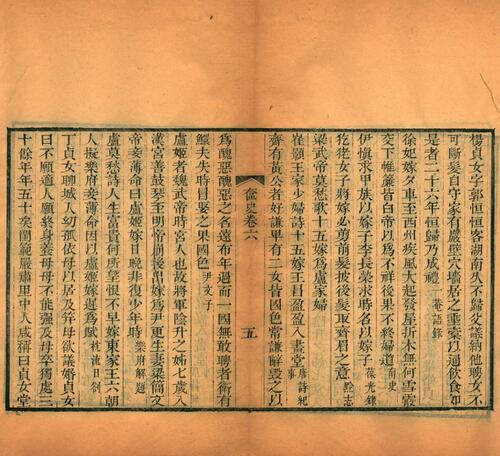 楊貞女字郭恒恒客湖南久不歸父議納他聘女不
可斷髮自守家有嚴壓穴墻居之垂索以通飲食如
是者二十六年恒歸乃成禮 菴語錄
徐妃嫁夕車至西州疾風大起發屋折木無何雪霰
交下帷簾皆白帝以爲不祥後果不終婦道 南史
伊慎求甲族以嫁子李長榮求時名以嫁子 葆光錄
犵狫女子將嫁必剪前髮披後髮取齊眉之意 黔志
梁武帝莫愁歌十五嫁爲盧家婦
崔顥王家少婦詩十五嫁王昌盈盈入畫堂 唐詩紀事
齊有黃公者好謙卑有二女皆國色常謙辭毀之以
奩史卷六 五
爲醜惡醜惡之名遠布年過而一國無敢聘者衛有
鰥夫失時冒娶之果國色 尹文子
盧姬者魏武帝時宮人也故將軍陰升之姊七歲入
漢宮善鼓琴至明帝崩後出嫁爲尹更生妻梁簡文
帝妾薄命曰盧姬嫁日晚非復少年時 樂府解題
盧莫愁詩人生富貴何所望恨不早嫁東家王六朝
人擬樂府妾薄命因以盧姬嫁遲爲賦 枕流日劄
丁貞女聊城人幼孤依母以居及筓母欲議婚貞女
曰不願適人願終身養母母不能强及母卒獨處三
十餘年年五十矣閨範嚴肅里中人咸稱曰貞女堂